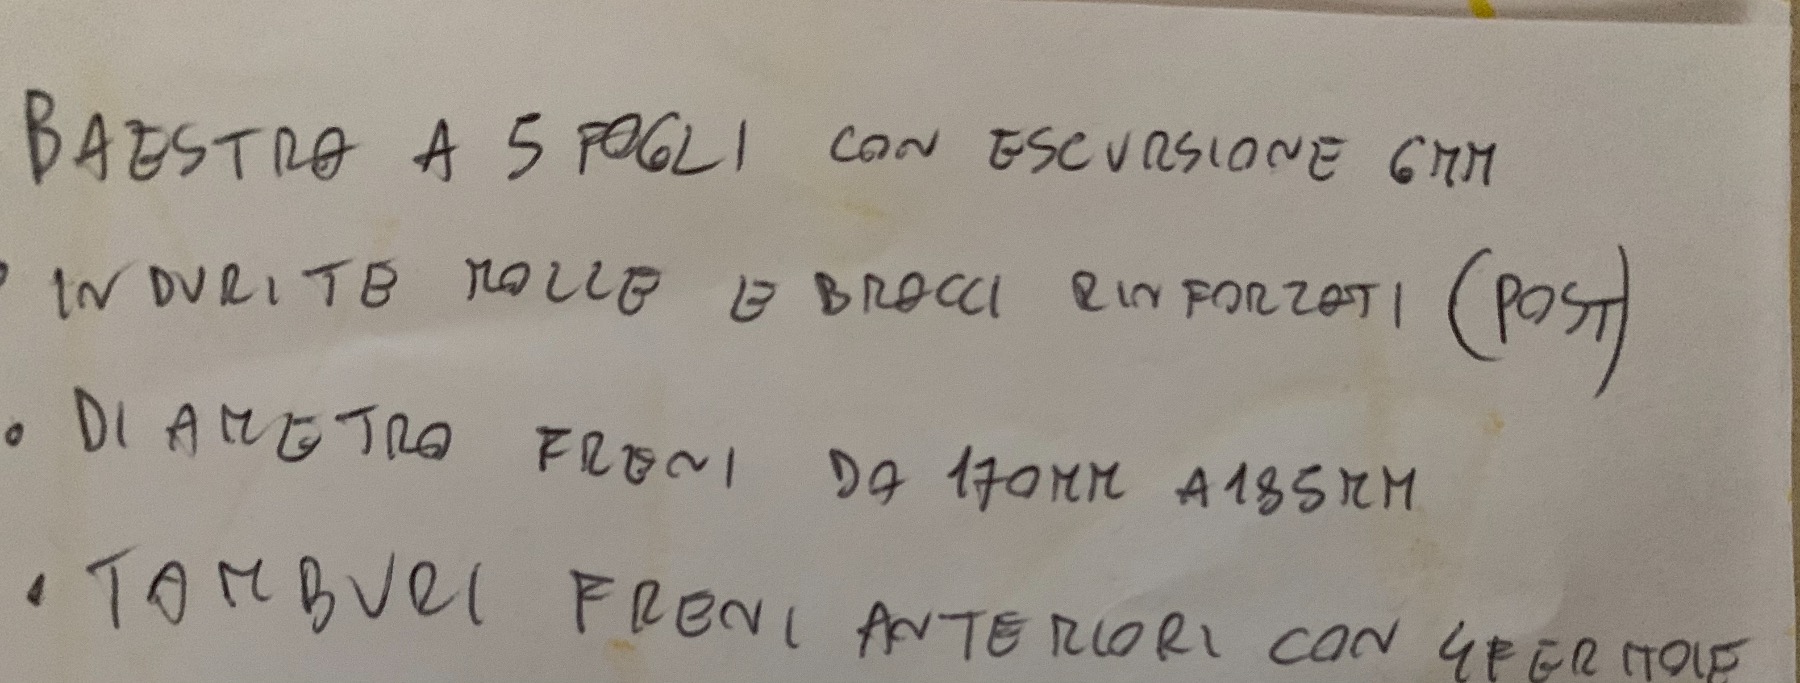 BAESTRA A 5 FOGLI CON ESCURSIONE 6MM
INDURITE MOLLE E BRACCI RINFORZATI (POST)
• DIAMETRO FRENI DA 170MM A 185MM
• TAMBURI FRENI ANTERIORI CON 4